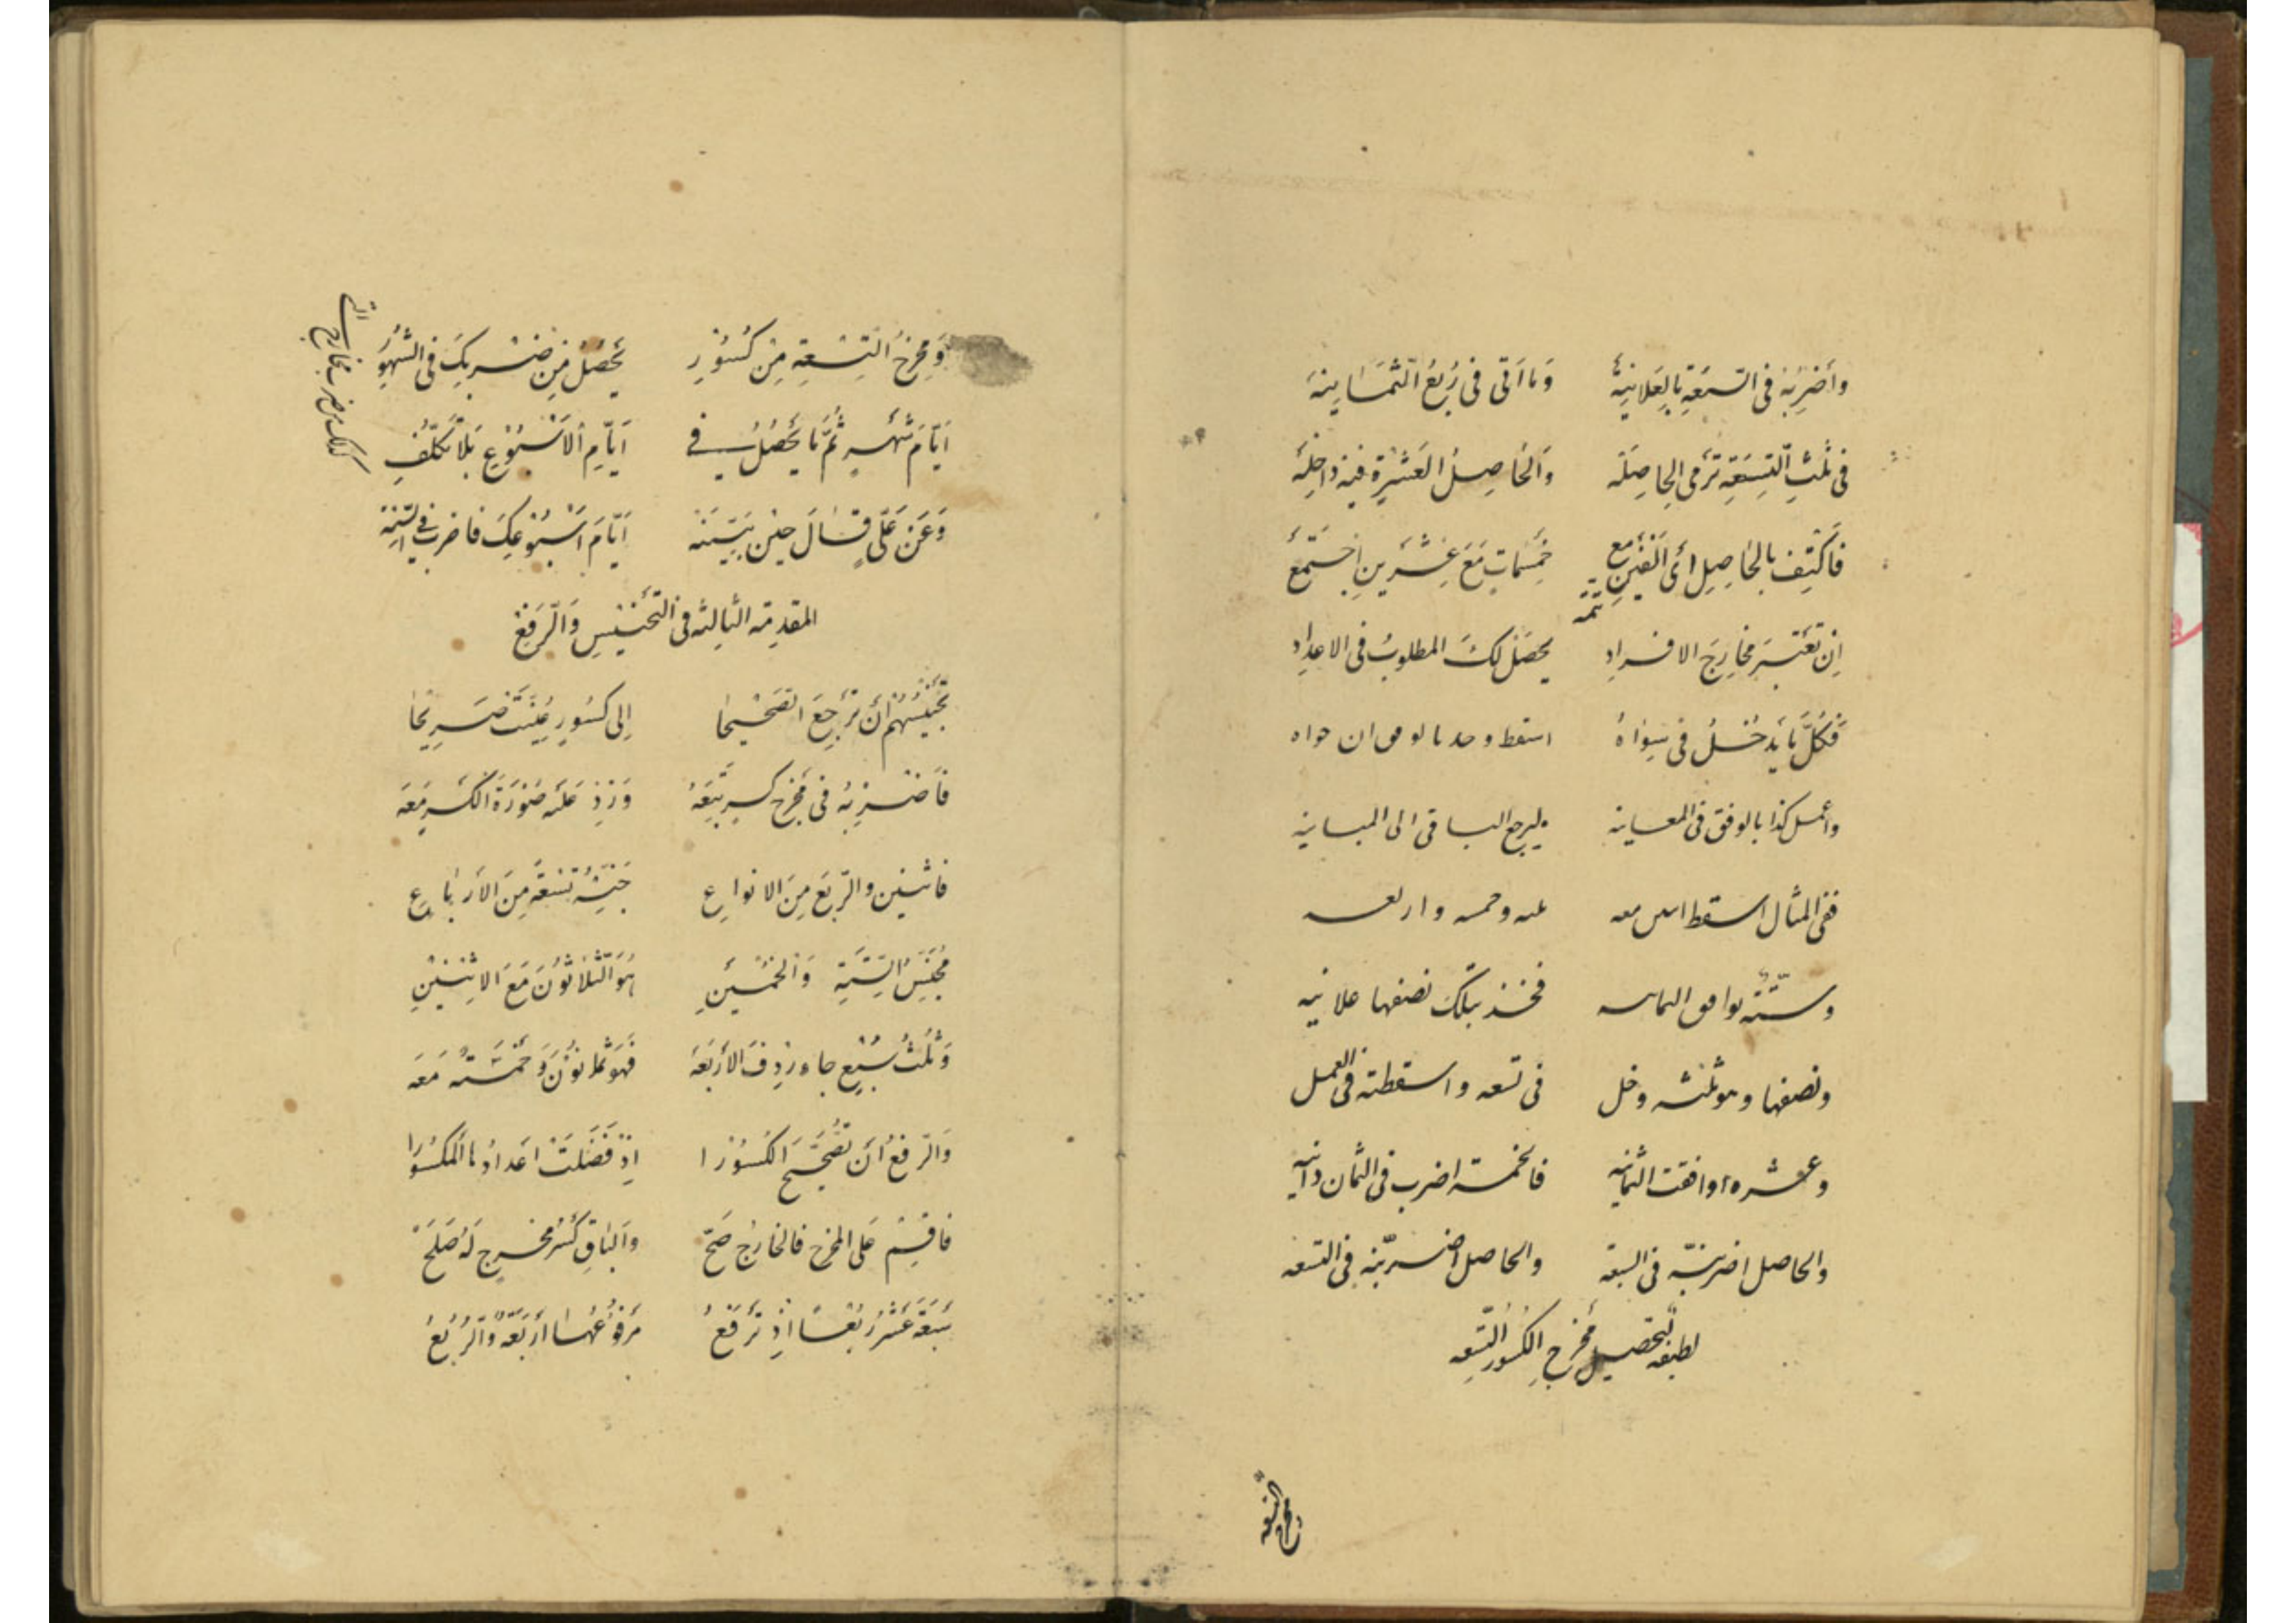 وأضربه في السبعة بالعلانية وما أتى في ربع الثمانية
في ثلث التسعة ترمى الحاصلة والحاصل العشرة فيه داخلة
فاكتف بالحاصل أي ألفين مع خمسمات مع عشرين اجتمع
تتمة
إن تعتبر مخارج الافراد يحصل لك المطلوب في الاعداد
فكل ما يدخل في سواه اسقط وحد بالوفق ان حواه
واعمل كذا بالوفق في المعاينه ليرجع الباقي الى المباينه
ففي المثال اسقط اثنين معه ثلثه وخمسه واربعه
وستة توافق الثمانيه فخذ بتلك نصفها علانيه
ونصفها وهو ثلثه دخل في تسعه واسقطته في العمل
وعشره وافقت الثمانيه فالخمسة اضرب في الثمان دانيه
والحاصل اضربنه في السبعة والحاصل اضربنه في التسعه
لطيفه لتحصيل مخرج الكسور التسعه
ومخرج التسعة
ومخرج التسعة من كسور يحصل من ضربك في الشهور
أيام شهر ثم ما يحصل في أيام الاسبوع بلا تكلف
وعن علي قال حين بينه أيام اسبوعك فاضرب في السنة
المقدمة الثالثة في التجنيس والرفع
تجنيسهم أن ترجع الصحيحا إلى كسور عينت صريحا
فاضربه في مخرج كسر تبعه وزد عليه صورة الكسر معه
فاثنين والربع من الانواع جنسه تسعة من الارباع
مجنس الستة والخمسين هو الثلاثون مع الاثنين
وثلث سبع جاء ردف الأربعة فهو ثمانون وخمسة معه
والرفع أن تصحح الكسورا إذ فضلت اعداد ما المكسورا
فاقسم على المخرج فالخارج صح والباق كسر مخرج له صلح
سبعة عشر ربعا إذ ترفع مرفوعها أربعة والربع